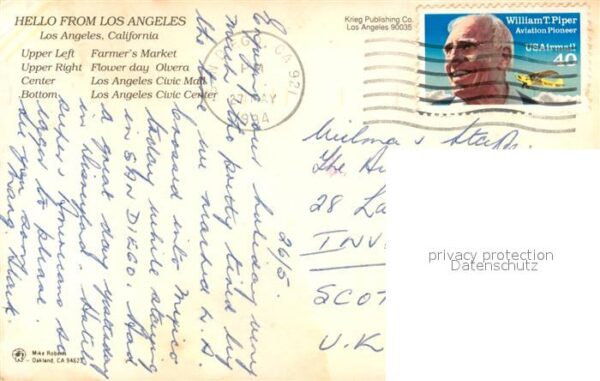 HELLO FROM LOS ANGELES
Los Angeles, California
Upper Left Farmer's Market
Upper Right Flower day Olvera
Center Los Angeles Civic Mall
Bottom Los Angeles Civic Center
Krieg Publishing Co.
Los Angeles 90035
William T. Piper
Aviation Pioneer
USAirmail
40
SAN DIEGO CA 921
27 MAY
1994
26/5.
Enjoying our holiday very
much tho pretty tired by
the time we reached L.A.
Crossed into Mexico
today while staying
in SAN DIEGO. Had
a great day yesterday
in Disneyland. Hotels
super & Americans so
eager to please.
See you soon
The
28 La
INV
SCOT
U.K
privacy protection
Datenschutz
Mike Roberts
Oakland, CA 94623